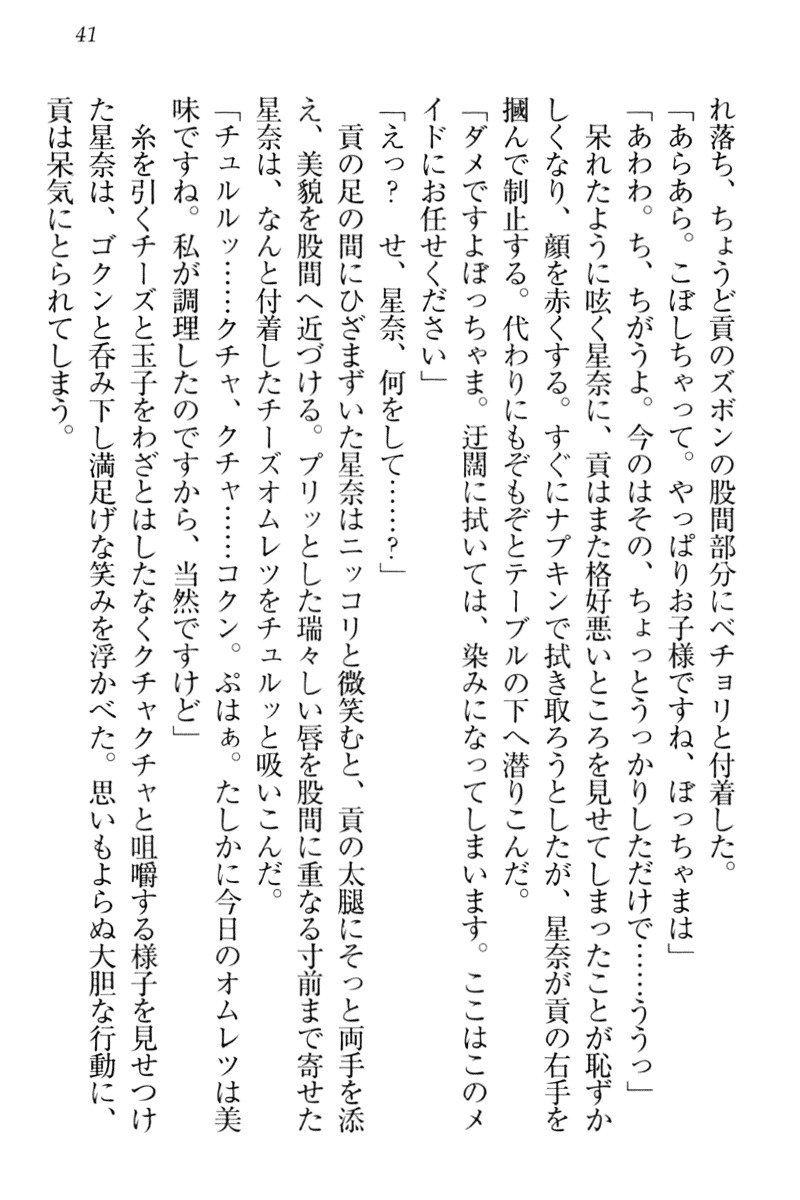 41
れ落ち、ちょうど貢のズボンの股間部分にベチョリと付着した。
「あらあら。こぼしちゃって。やっぱりお子様ですね、ぼっちゃまは」
「あわわ。ち、ちがうよ。今のはその、ちょっとうっかりしただけで……ううっ」
　呆れたように呟く星奈に、貢はまた格好悪いところを見せてしまったことが恥ずか
しくなり、顔を赤くする。すぐにナプキンで拭き取ろうとしたが、星奈が貢の右手を
摑んで制止する。代わりにもぞもぞとテーブルの下へ潜りこんだ。
「ダメですよぼっちゃま。迂闊に拭いては、染みになってしまいます。ここはこのメ
イドにお任せください」
「えっ？　せ、星奈、何をして……？」
　貢の足の間にひざまずいた星奈はニッコリと微笑むと、貢の太腿にそっと両手を添
え、美貌を股間へ近づける。プリッとした瑞々しい唇を股間に重なる寸前まで寄せた
星奈は、なんと付着したチーズオムレツをチュルッと吸いこんだ。
「チュルルッ……クチャ、クチャ……コクン。ぷはぁ。たしかに今日のオムレツは美
味ですね。私が調理したのですから、当然ですけど」
　糸を引くチーズと玉子をわざとはしたなくクチャクチャと咀嚼する様子を見せつけ
た星奈は、ゴクンと呑み下し満足げな笑みを浮かべた。思いもよらぬ大胆な行動に、
貢は呆気にとられてしまう。